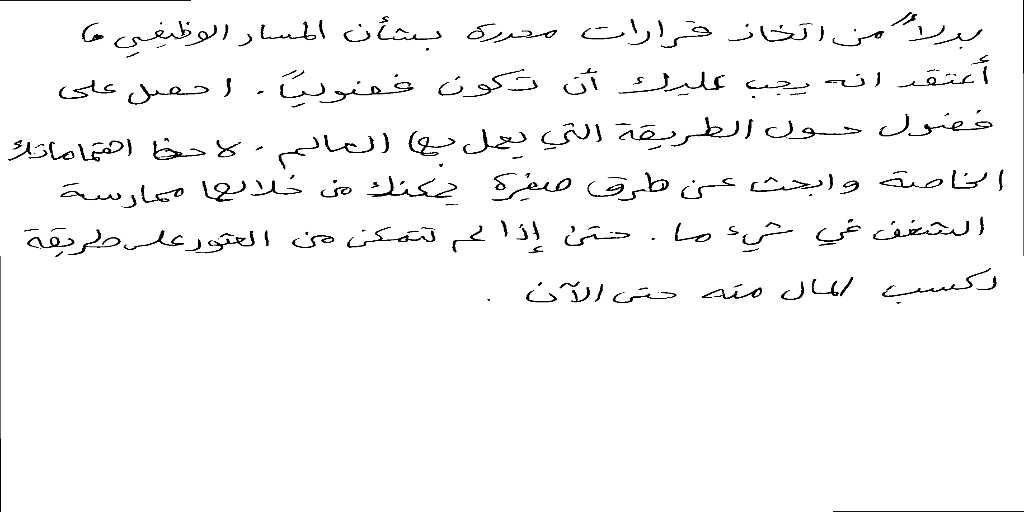 بدلاً من اتخاذ قرارات محددة بشأن المسار الوظيفي ،
أعتقد انه يجب عليك أن تكون فضولياً. احصل على
فضول حول الطريقة التي يعمل بها العالم. لاحظ اهتماماتك
الخاصة وابحث عن طرق صغيرة يمكنك من خلالها ممارسة
الشغف في شيء ما. حتى إذا لم تتمكن من العثور على طريقة
لكسب المال منه حتى الآن .